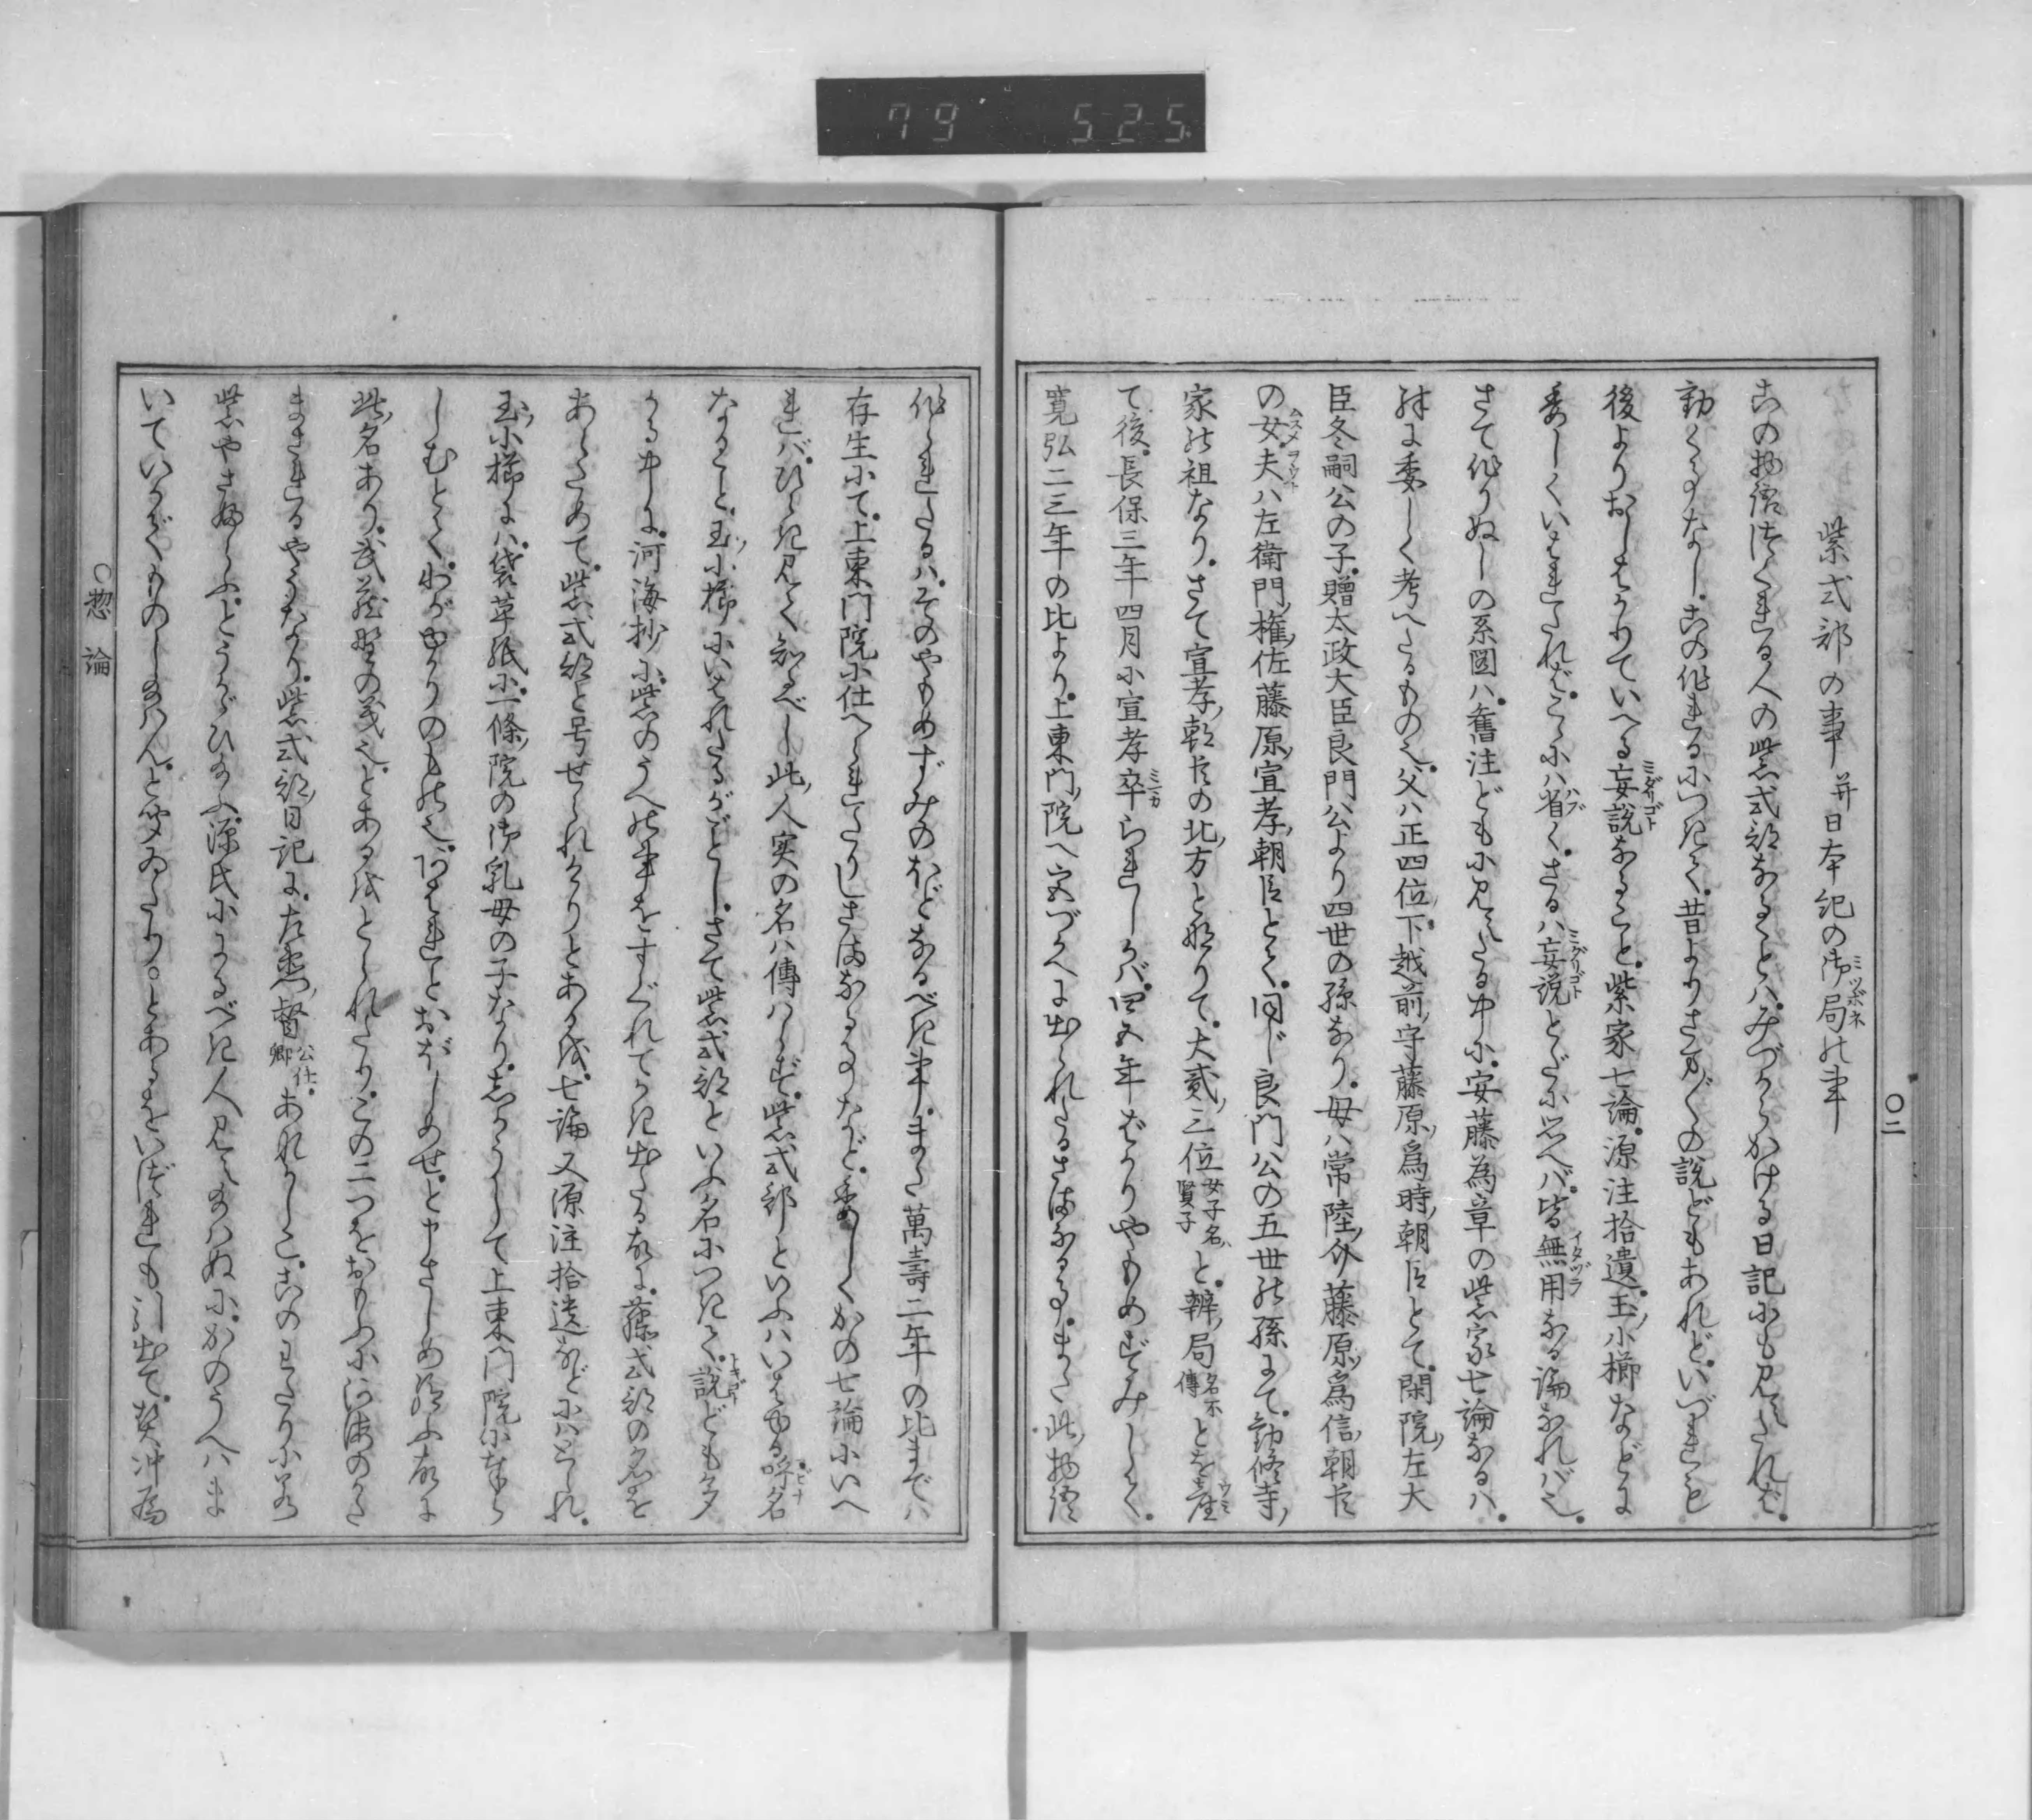 79 525
〇二
紫式部の事 并日本紀の御局の事
この物語つくれる人の紫式部なることハ、みづからかける日記にも見えたれば、
動くことなし。この作れるにつきて、昔よりさまざまの説どもあれど、いづれも
後よりおしはかりていへる妄説なること、紫家七論、源注拾遺、玉ノ小櫛などに
委しくいはれたれば、こゝにハ省く。さるハ妄説とだに思へバ、皆無用なる論なれバ也。
さて作りぬしの系図ハ、舊注どもに見えたる中に、安藤為章の紫家七論なるハ、
殊に委しく考へたるもの也。父ハ正四位ノ下、越前ノ守藤原ノ為時ノ朝臣とて、閑院ノ左大
臣冬嗣公の子、贈太政大臣良門公より四世の孫なり。母ハ常陸ノ介藤原ノ為信ノ朝臣
の女、夫ハ左衛門ノ権ノ佐藤原ノ宣孝ノ朝臣とて、同じ良門公の五世の孫にて、勧修寺ノ
家の祖なり。さて宣孝ノ朝臣の北ノ方と成りて、大貳ノ三位女子名ハ賢子と、辨ノ局名不傳とを産
て後、長保三年四月に宣孝卒られしかバ、四五年ばかりやもめずみしして、
寛弘二三年の比より、上東門ノ院へ宮づかへに出られたるさまなる事、また此ノ物語
作られたるハ、そのやもめずみのほどなるべき事、また萬壽二年の比までハ
存生にて、上東門院に仕へられたりしさまなる事など、委しくかの七論にいへ
れバ、ひらき見て知るべし。此ノ人実の名ハ傳ハらず。紫式部といふハいはゆる呼名
なること、玉ノ小櫛にいはれたるがごとし。さて紫式部といふ名につきて、説どもあ
る中に、河海抄に、紫のうへの事をすぐれてかき出たる故に、藤式部の名を
あらためて、紫式部と号せられけりとある
玉ノ小櫛に、袋草紙に、一條ノ院の御乳母の子なり。しかうして上東門院に奉ら
しむとて、わがゆかりのもの也、あはれとおぼしめせ、と申さしめ給ふ故に
此ノ名あり。武蔵野の義也、とある
まされるやうなり。紫式部ノ日記に、左衛ノ督公任卿。あなかしこ、このわたりに若
紫やさぶらふ、とうかゞひ給ふ。源氏にかゝるべき人見え給はぬに、かのうへハま
いていかでものし給はん、と聞ゐたり。とあるをいづれも引出て、契沖為
〇惣論